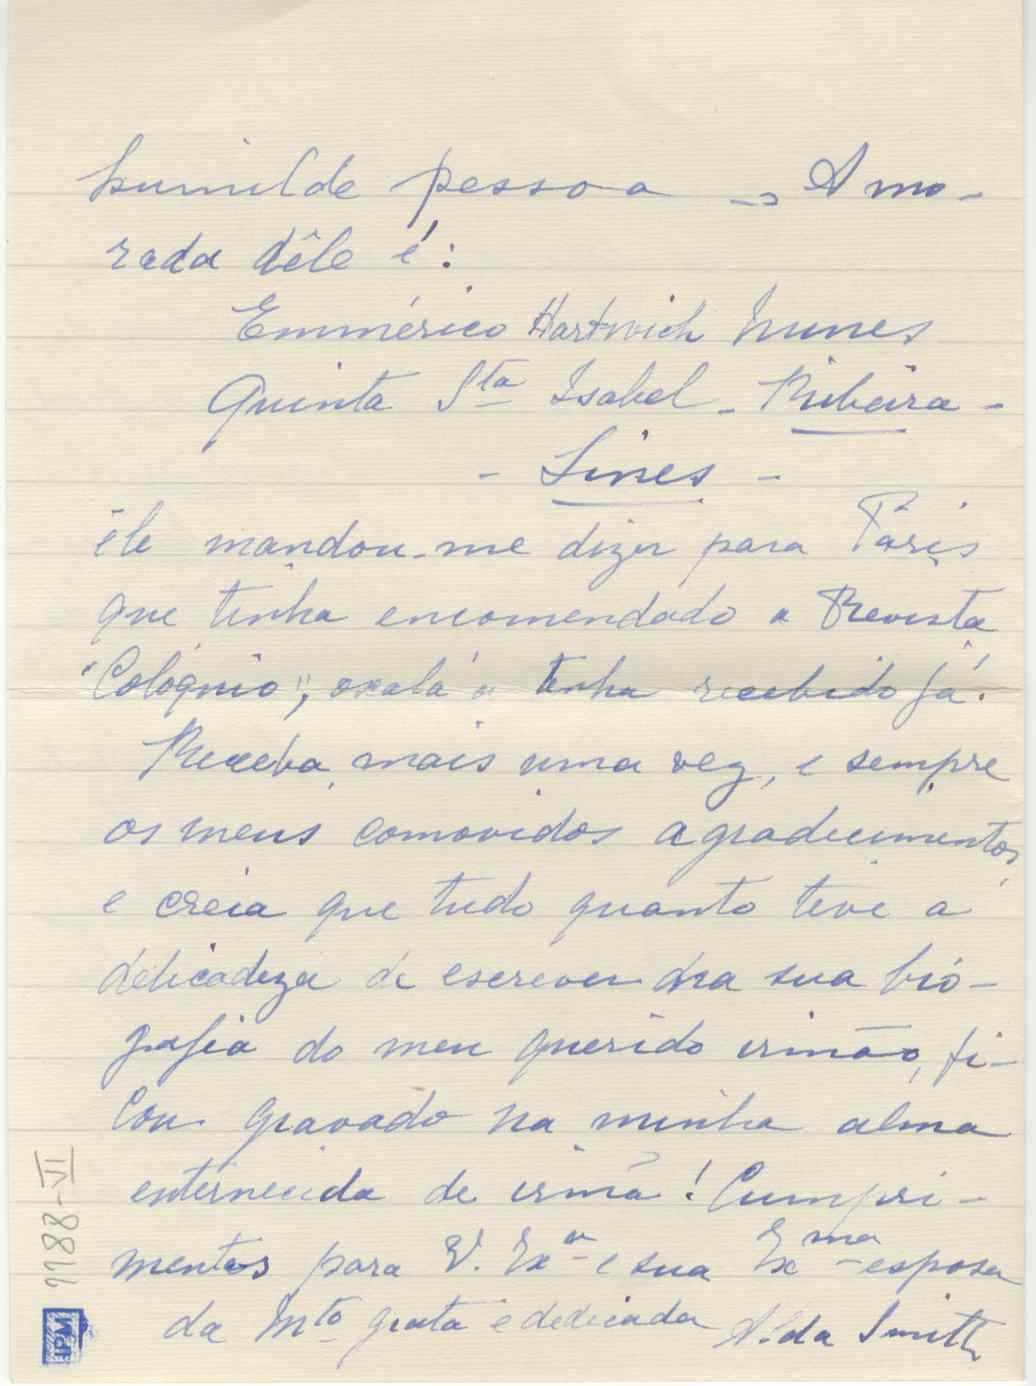 humilde pessoa - A mo-
rada dêle é:
Emmérico Hartwich Nunes
Quinta Sta Isabel - Ribeira -
- Sines -
êle mandou-me dizer para Paris
que tinha encomendado a Revista
"Colóquio", oxalá a tenha recebido já.
Receba mais uma vez, e sempre
os meus comovidos agradecimentos
e creia que tudo quanto teve a
delicadeza de escrever na sua bio-
grafia do meu querido irmão, fi-
cou gravado na minha alma
enternecida de irmã! Cumpri-
mentos para V. Exa e sua Exma esposa
da Mto grata e dedicada Alda Smith
1188-VI
IPM